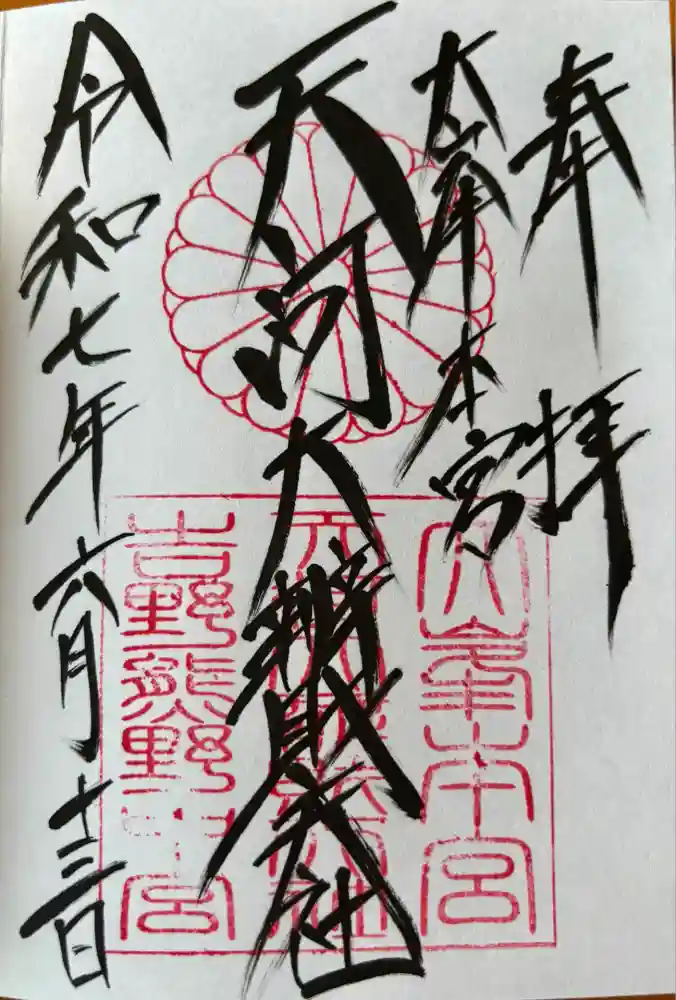 奉拝
大峯本宮
天河大辨財天社
令和七年六月十三日
大峯本宮
天河大辨財天社
吉野熊野中宮